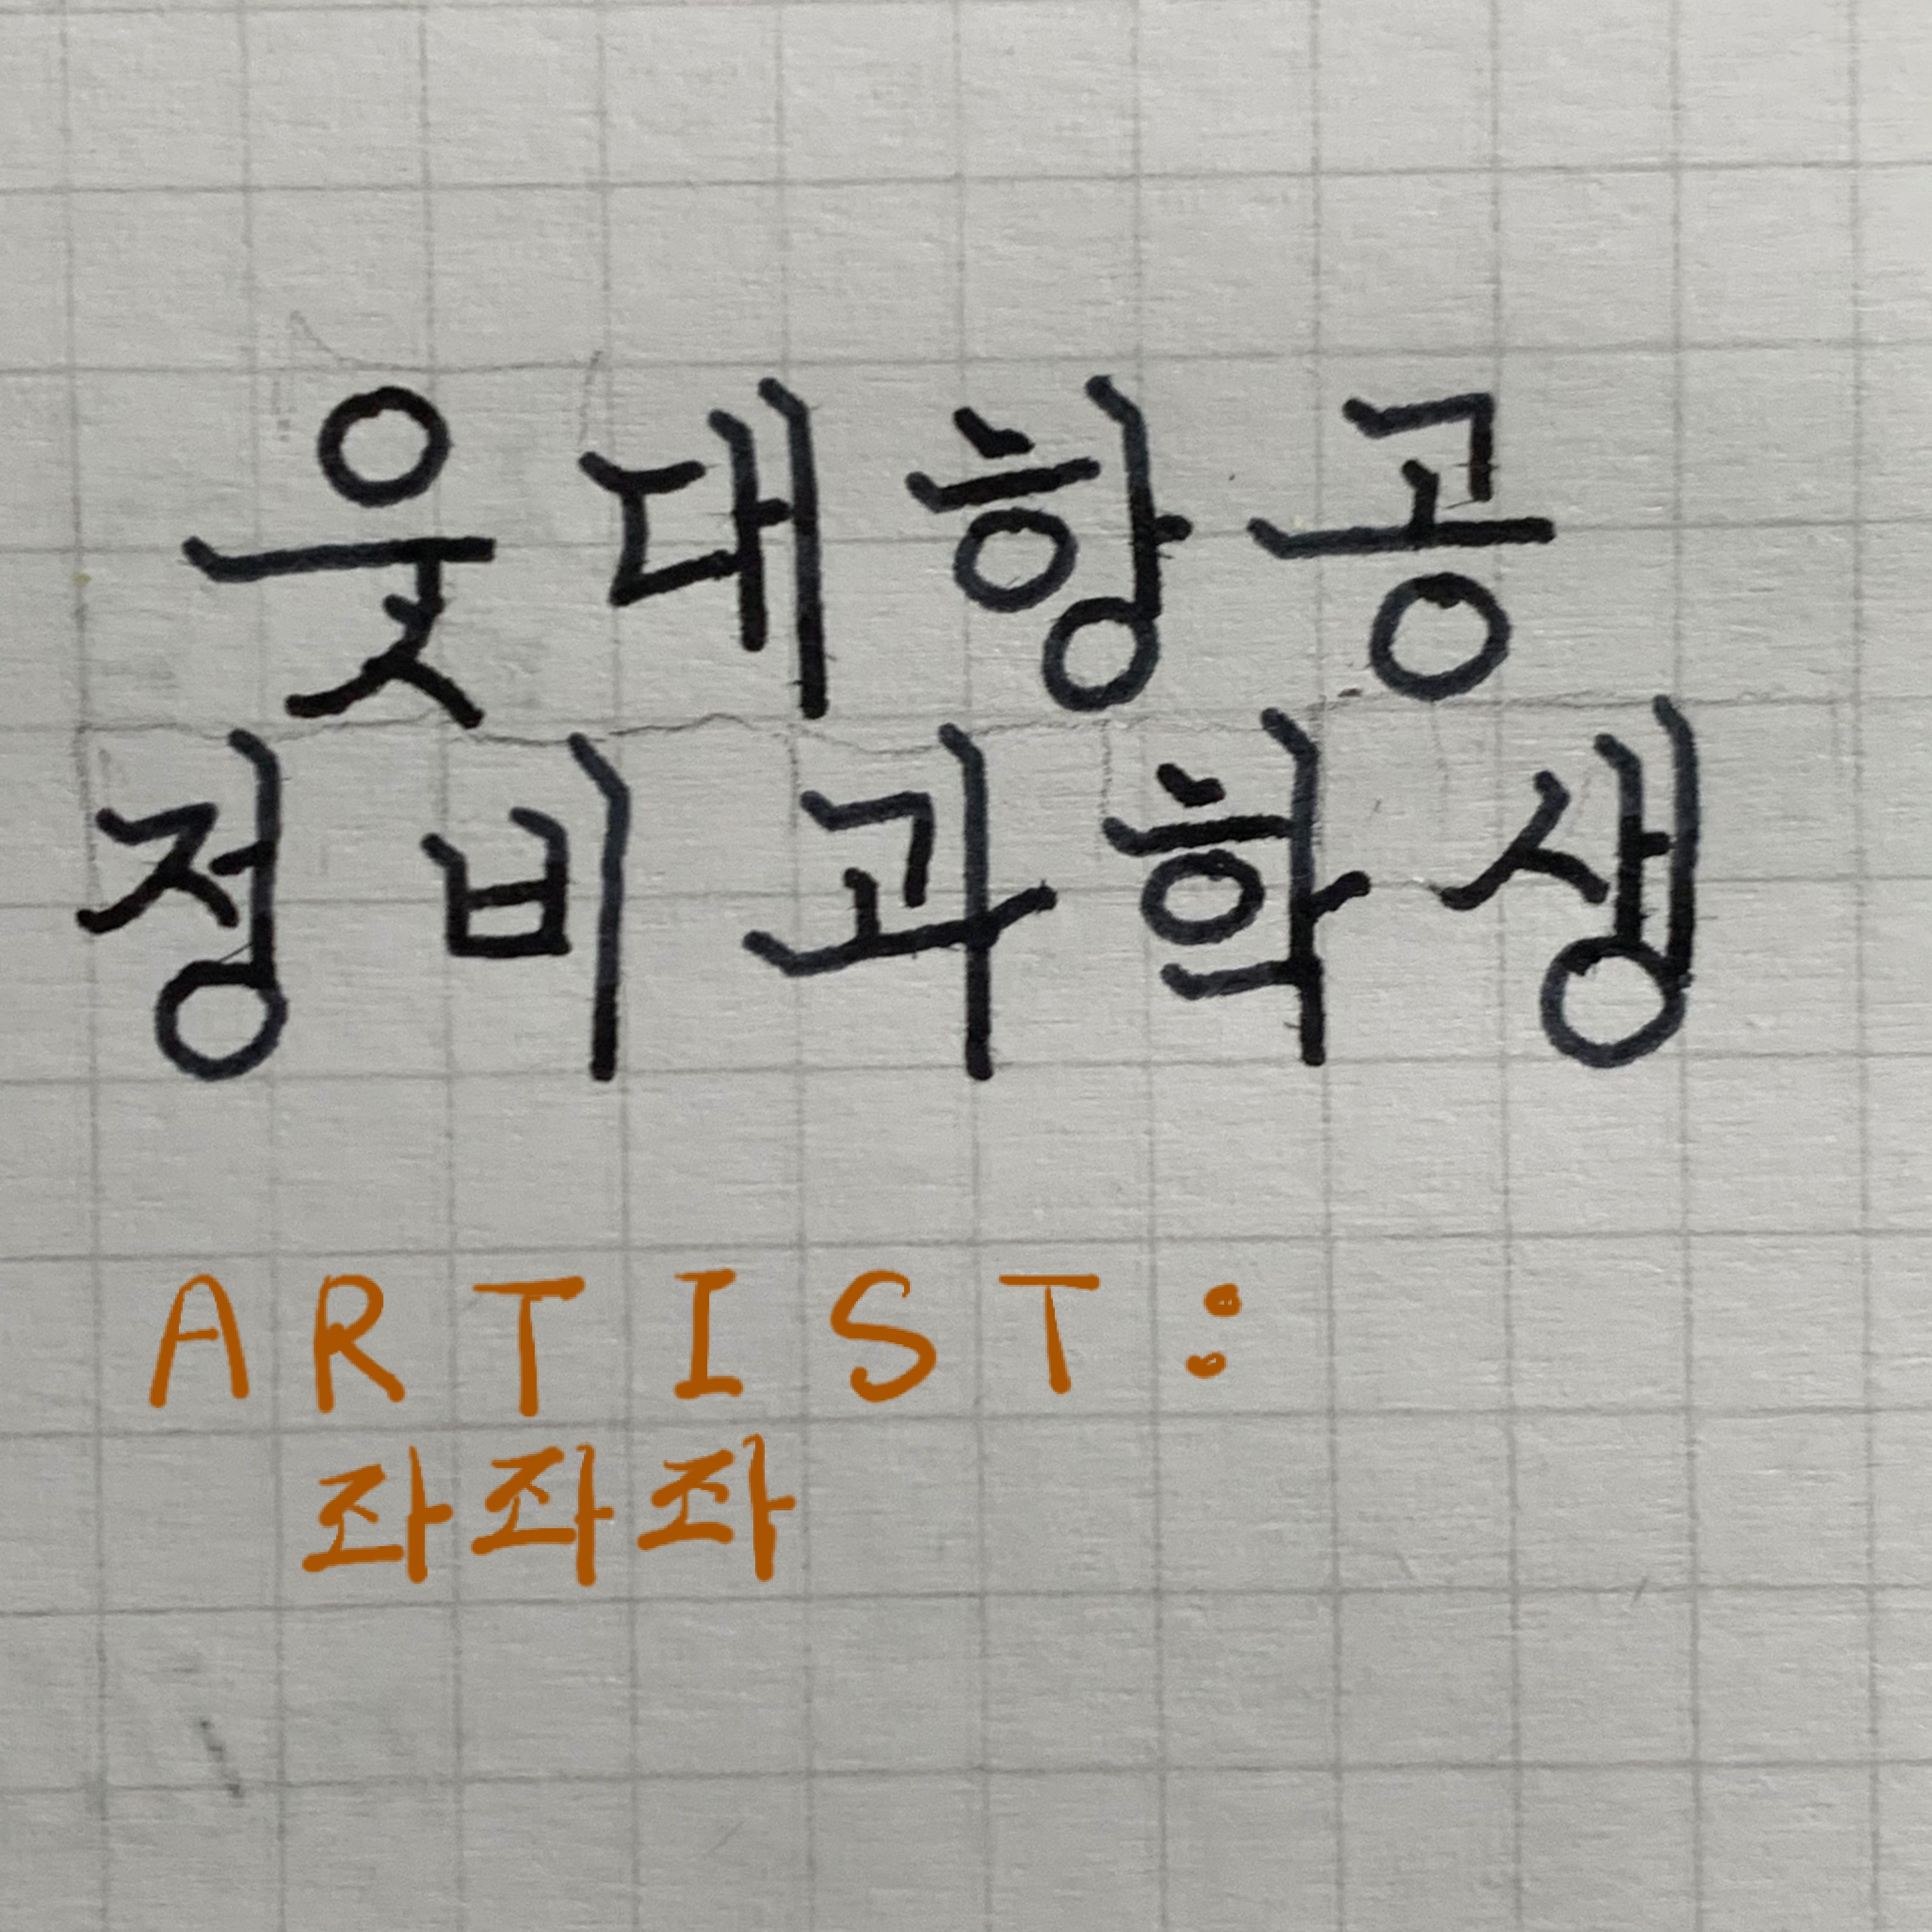 웃대항공
정비과학생
ARTIST:
좌좌좌